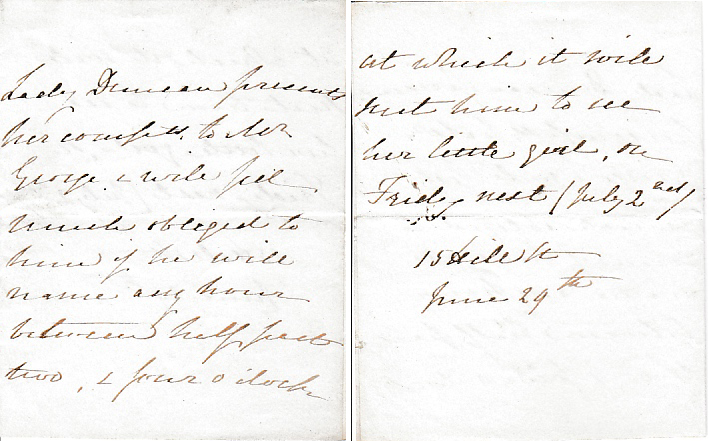 Lady Duncan presents
her compts. to Mr
George & will feel
much obliged to
him if he will
name any hour
between half past
two, & four o'clock
at which it will
suit him to see
her little girl, on
Friday next (July 2nd)
15 Hill St
June 29th